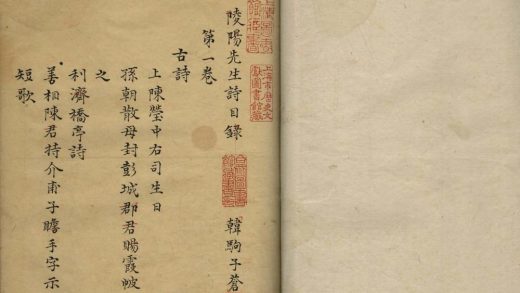 陵陽先生詩目錄
韓駒子蒼
第一卷
古詩
上陳瑩中右司生日
孫朝散母封彭城郡君賜霞帔
之
利濟橋亭詩
善相陳君持介甫子瞻手字示
短歌
上海市歷史文
獻圖書館藏